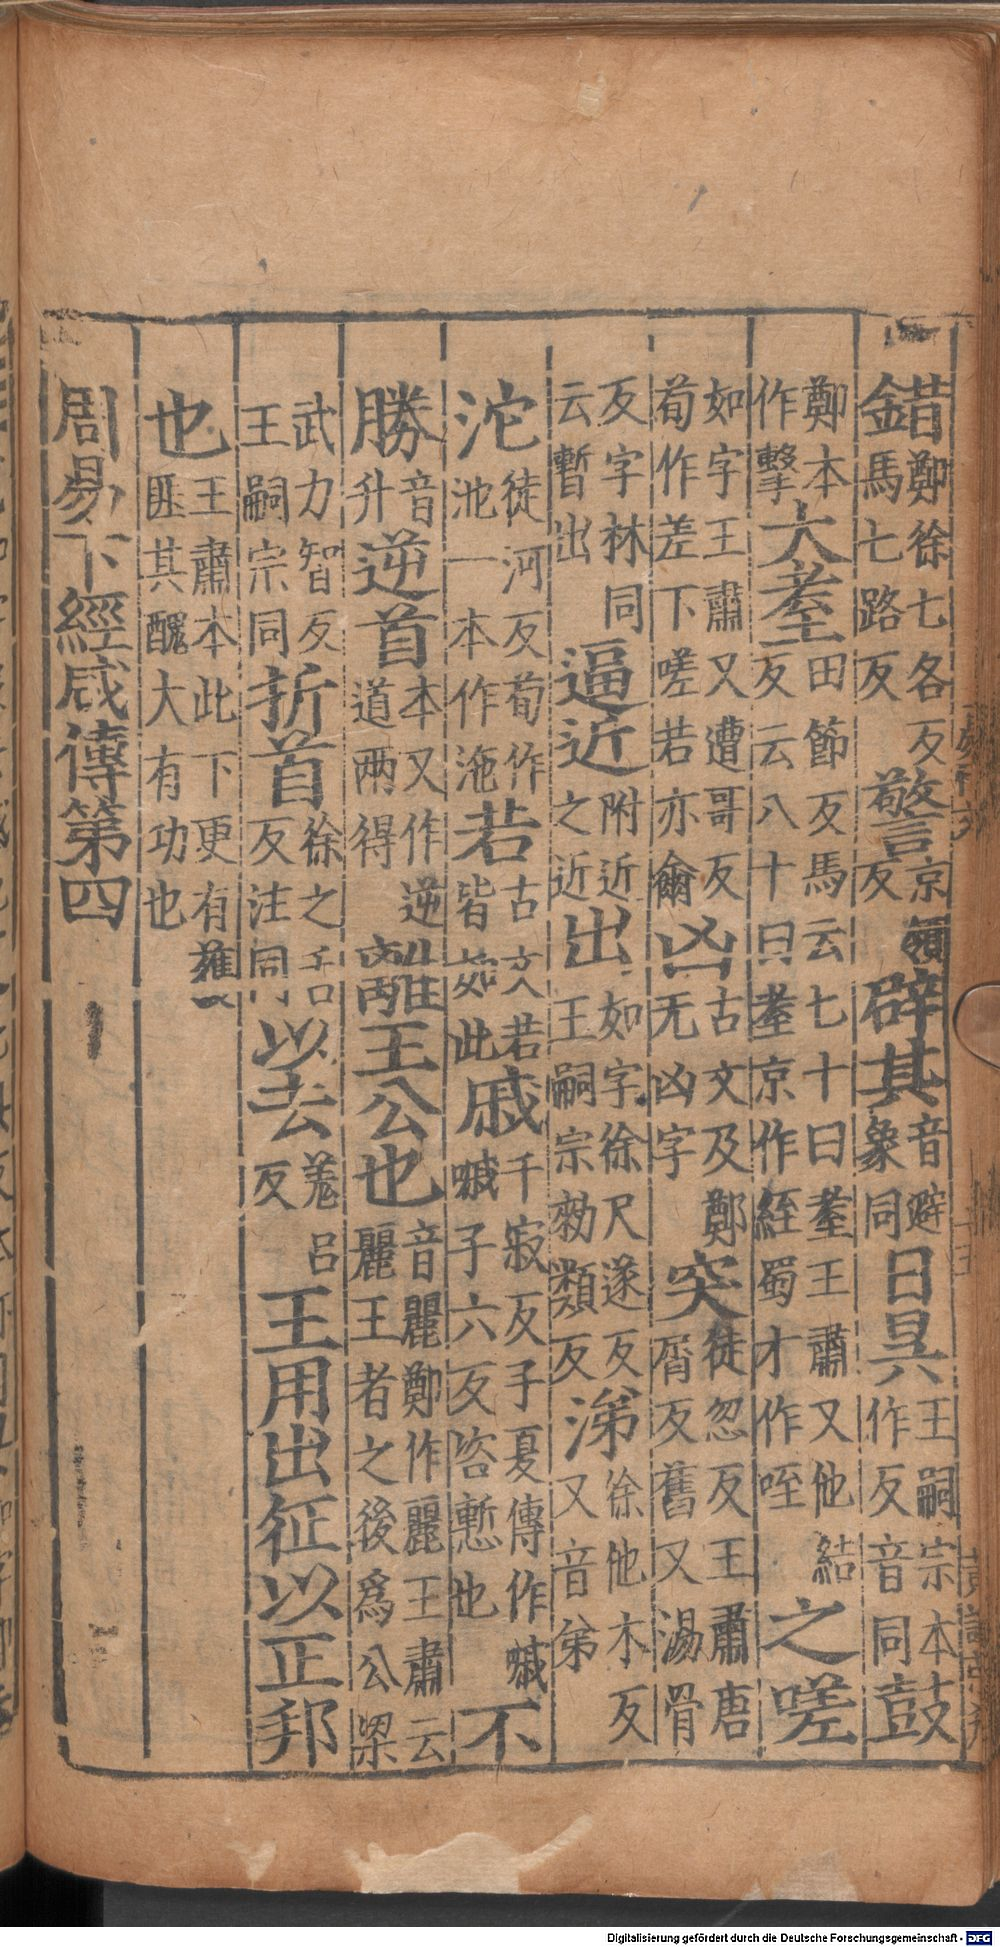 錯鄭徐七各反馬七路反警京領反辟其音避象同日昃王嗣宗本作反音同鼓
鄭本作擊大耋田節反馬云七十曰耋王肅又他結反云八十曰耋京作絰蜀才作咥之嗟
如字王肅又遭哥反荀作差下嗟若亦爾凶古文及鄭无凶字突徒忽反王肅唐屑反舊又湯骨
反字林同云暫出逼近附近之近出如字徐尺遂反王嗣宗勑類反涕徐他木反又音弟
沱徒河反荀作池一本作沲若古文若皆如此戚千寂反子夏傳作嘁嘁子六反咨慙也不
勝音升逆首本又作逆道兩得離王公也音麗鄭作麗王肅云麗王者之後爲公梁
武力智反王嗣宗同折首徐之舌反注同以去羌呂反王用出征以正邦
也王肅本此下更有獲匪其醜大有功也
周易下經咸傳第四
Digitalisierung gefördert durch die Deutsche Forschungsgemeinschaft - DFG